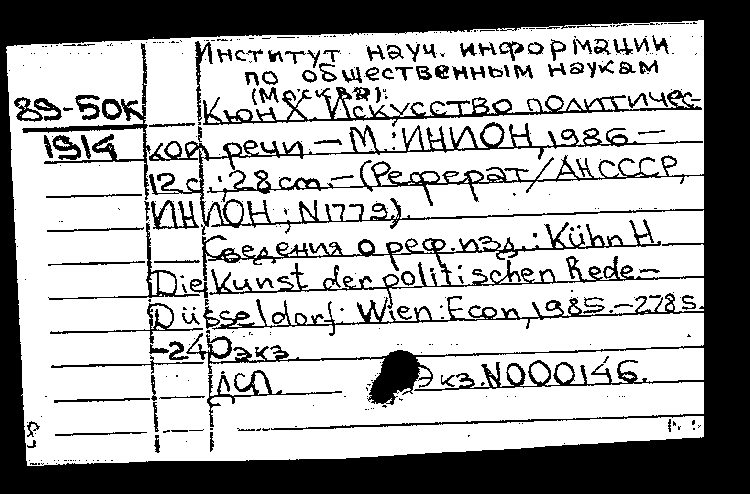 Институт науч. информации
по общественным наукам
(Москва).
89-50к Кюн Х. Искусство политичес-
1914 кой речи. — М.: ИНИОН, 1986. —
12 с.; 28 cm. — (Реферат/АН СССР,
ИНИОН; N1779).
Сведения о реф. изд.: Kühn H.
Die Kunst der politischen Rede —
Düsseldorf: Wien: Econ, 1985. — 278 s.
— 240 экз.
ДСП. Экз. N000146.